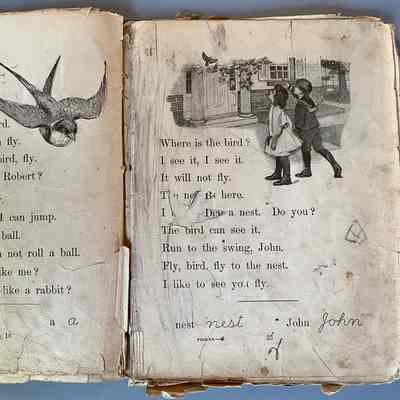 rd.
fly.
bird, fly.
Robert?
I can jump.
ball.
not roll a ball.
like me?
like a rabbit?
a a
Where is the bird?
I see it, I see it.
It will not fly.
here.
I a nest. Do you?
The bird can see it.
Run to the swing, John.
Fly, bird, fly to the nest.
I like to see you fly.
nest nest John John